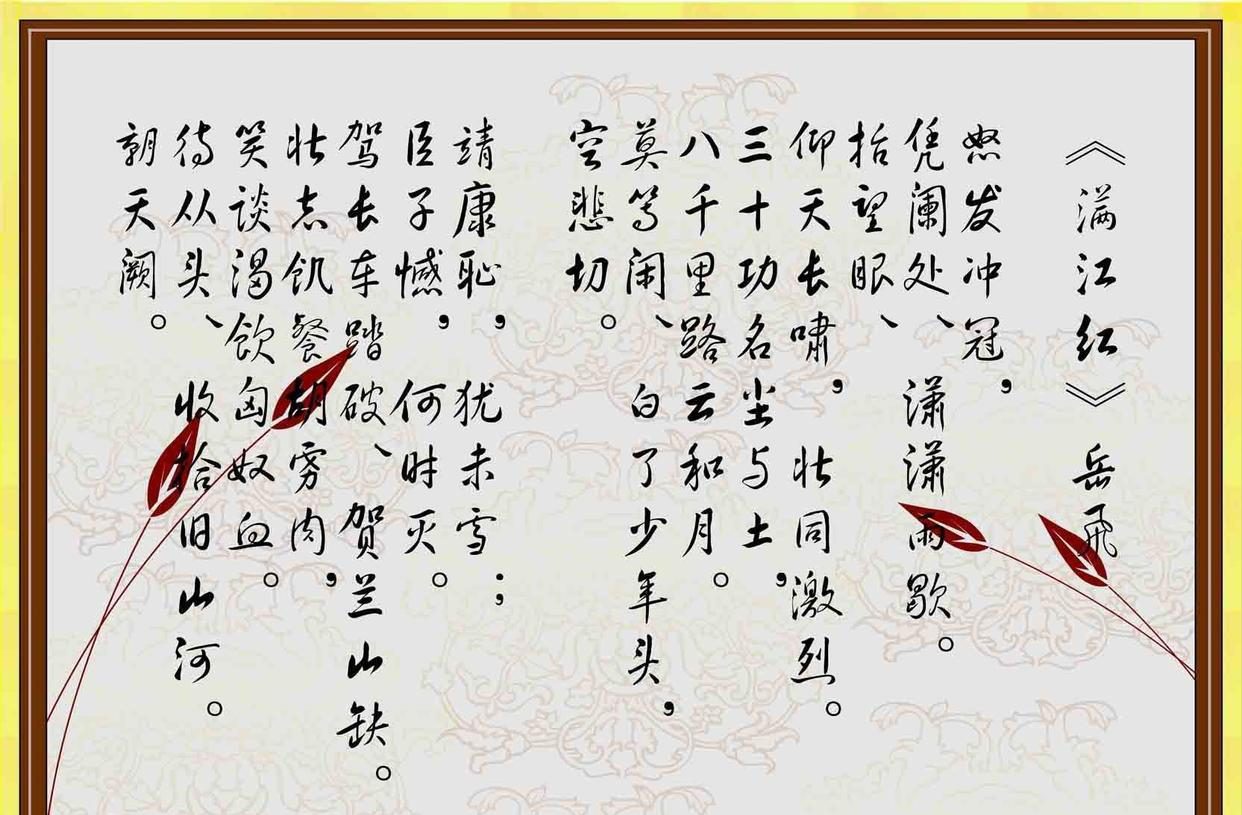 《满江红》岳飛
怒发冲冠，
凭阑处、潇潇雨歇。
抬望眼、
仰天长啸，壮同激烈。
三十功名尘与土，
八千里路云和月。
莫等闲、白了少年头，
空悲切。
靖康耻，犹未雪；
臣子憾，何时灭。
驾长车踏破、贺兰山缺。
壮志饥餐胡虏肉，
笑谈渴飲匈奴血。
待从头、收拾旧山河。
朝天阙。